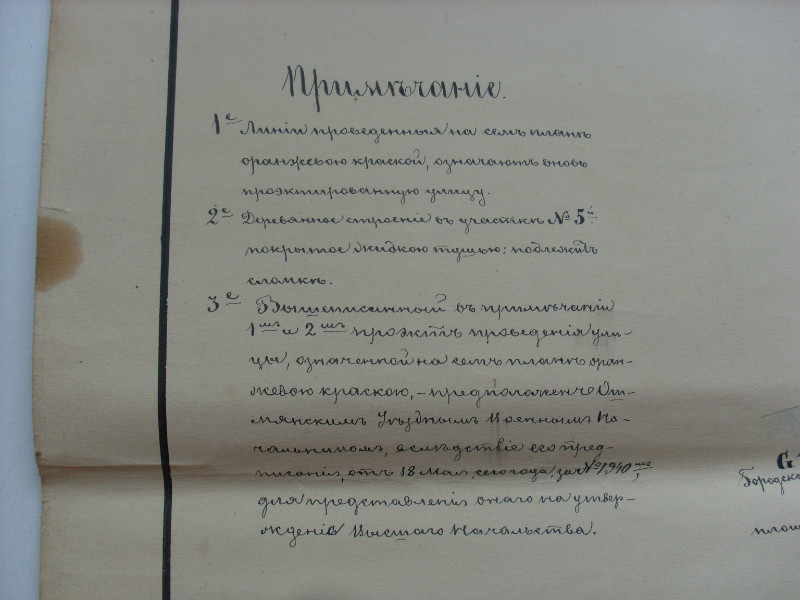 Примѣчаніе.
1е Линіи проведенныя на семъ планѣ
оранжевою краской, означаютъ вновь
проэктированную улицу.
2е Деревянное строеніе въ участкѣ № 5й
покрытое жидкою тушью: подлежитъ
сломкѣ.
3е Вышеписанный въ примѣчаніи
1мъ и 2мъ проэктъ проведенія ули-
цы, означенной на семъ планѣ оран-
жевою краскою, – предположенъ Ош-
мянскимъ Уѣзднымъ Военнымъ На-
чальникомъ, вслѣдствіе его пред-
писанія, отъ 18 Мая, сего года, за № 1940мъ,
для представленія онаго на утвер-
жденіе Высшаго Начальства.
Городско
площ